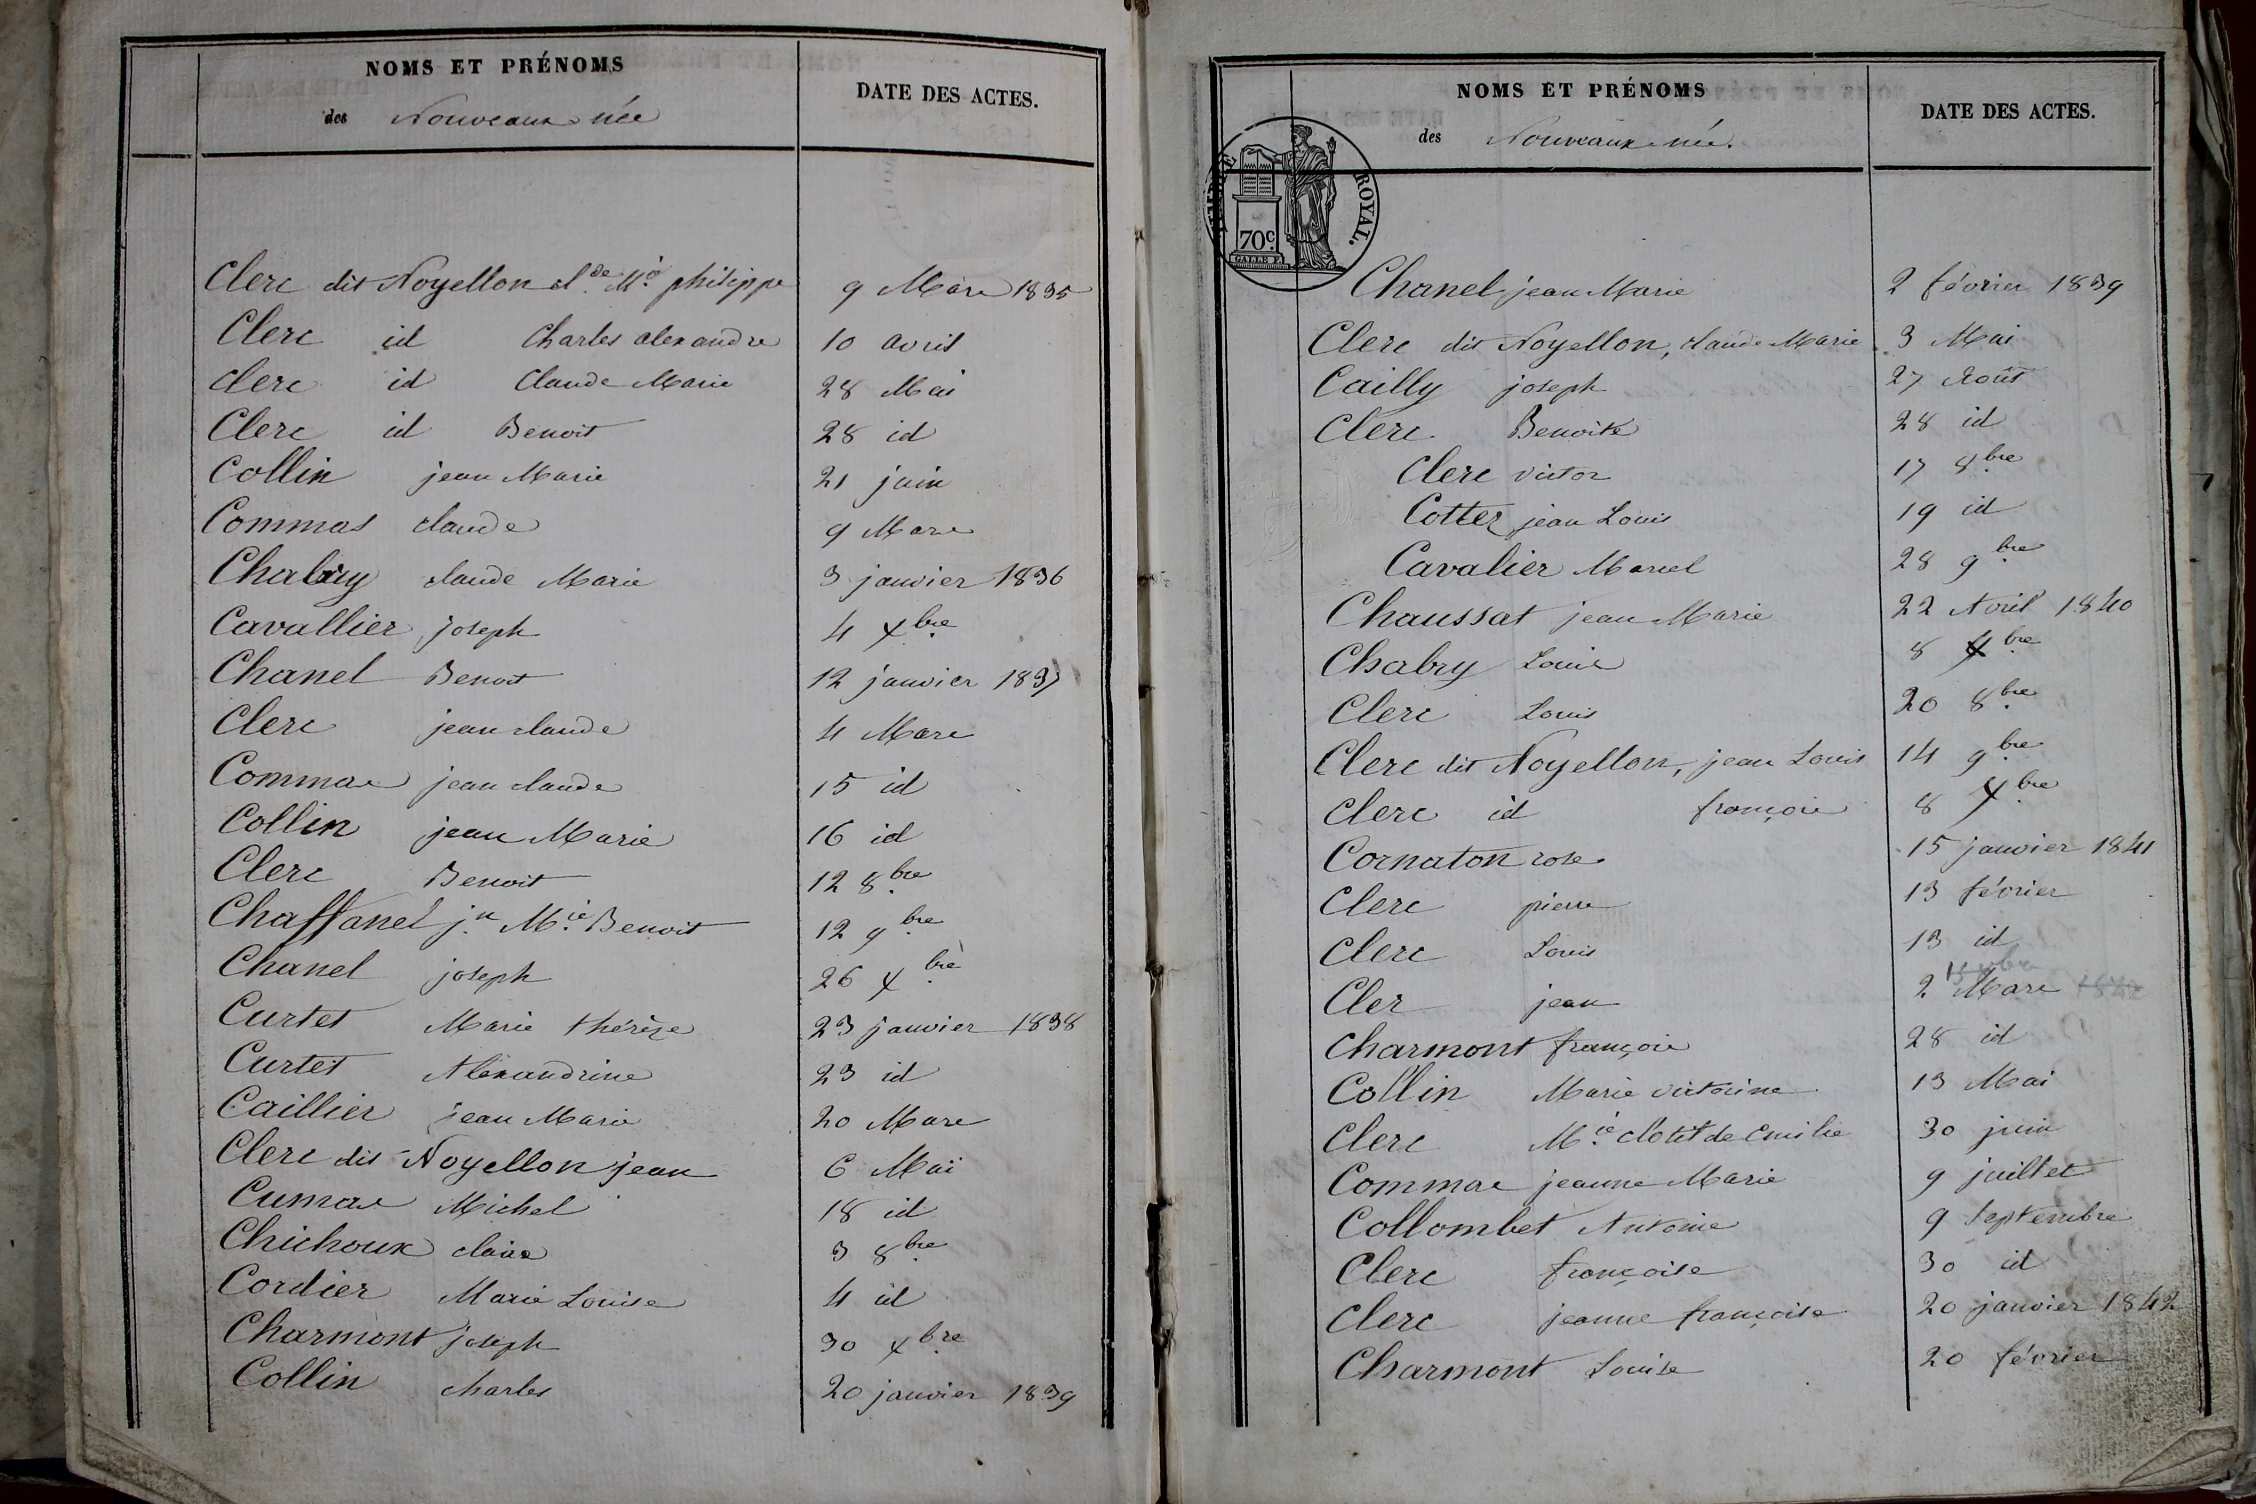 NOMS ET PRÉNOMS
des Nouveaux née
DATE DES ACTES.
Clerc dit Noyellon cl.de M.ie philippe 9 Mars 1835
Clerc id Charles alexandre 10 avril
Clerc id Claude Marie 28 Mai
Clerc id Benoit 28 id
Collin jean Marie 21 juin
Commas claude 9 Mars
Chabry claude Marie 3 janvier 1836
Cavallier joseph 4 xbre
Chanel Benoit 12 janvier 1837
Clerc jean claude 4 Mars
Commas jean claude 15 id
Collin jean Marie 16 id
Clerc Benoit 12 8bre
Chaffanel j.n M.ie Benoit 12 9bre
Chanel joseph 26 xbre
Curtet Marie thérèze 23 janvier 1838
Curtet Alexandrine 23 id
Caillier jean Marie 20 Mars
Clerc dit Noyellon jean 6 Mai
Cumas Michel 18 id
Chichoux claire 3 8bre
Cordier Marie Louise 4 id
Charmont joseph 30 xbre
Collin charles 20 janvier 1839
NOMS ET PRÉNOMS
des Nouveaux née.
DATE DES ACTES.
TIMBRE ROYAL.
70c.
GALLE F.
Chanel jean Marie 2 février 1839
Clerc dit Noyellon, claude Marie 3 Mai
Cailly joseph 27 Août
Clerc Benoite 28 id
Clerc victor 17 8bre
Cottez jean Louis 19 id
Cavalier Marcel 28 9bre
Chaussat jean Marie 22 Avril 1840
Chabry Louis 8 bre
Clerc Louis 20 8bre
Clerc dit Noyellon, jean Louis 14 9bre
Clerc id françois 8 xbre
Cornaton rose 15 janvier 1841
Clerc pierre 13 février
Clerc Louis 13 id
Cler jean 2 Mars
Charmont françois 28 id
Collin Marie victorine 13 Mai
Clerc M.ie clotilde emilie 30 juin
Commas jeanne Marie 9 juillet
Collombet Antoine 9 septembre
Clerc françoise 30 id
Clerc jeanne françoise 20 janvier 1842
Charmont Louise 20 février